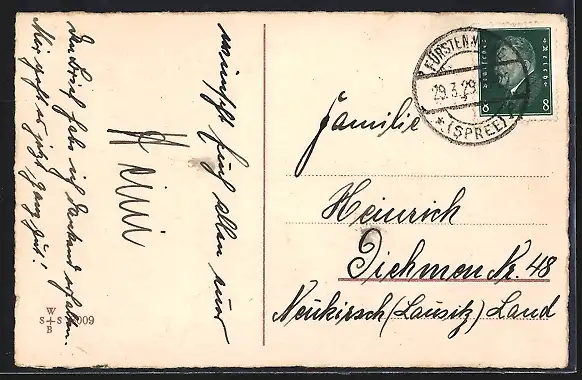 wünscht Euch allen nur
Heini
Den Brief habe ich dankend erhalten.
Mir geht es jetzt ganz gut!
W
S+S 009
B
FÜRSTENW
29.3.29
*(SPREE)
8 8
Familie
Heinrich
Diehmen Nr. 48
Neukirsch (Lausitz) Land